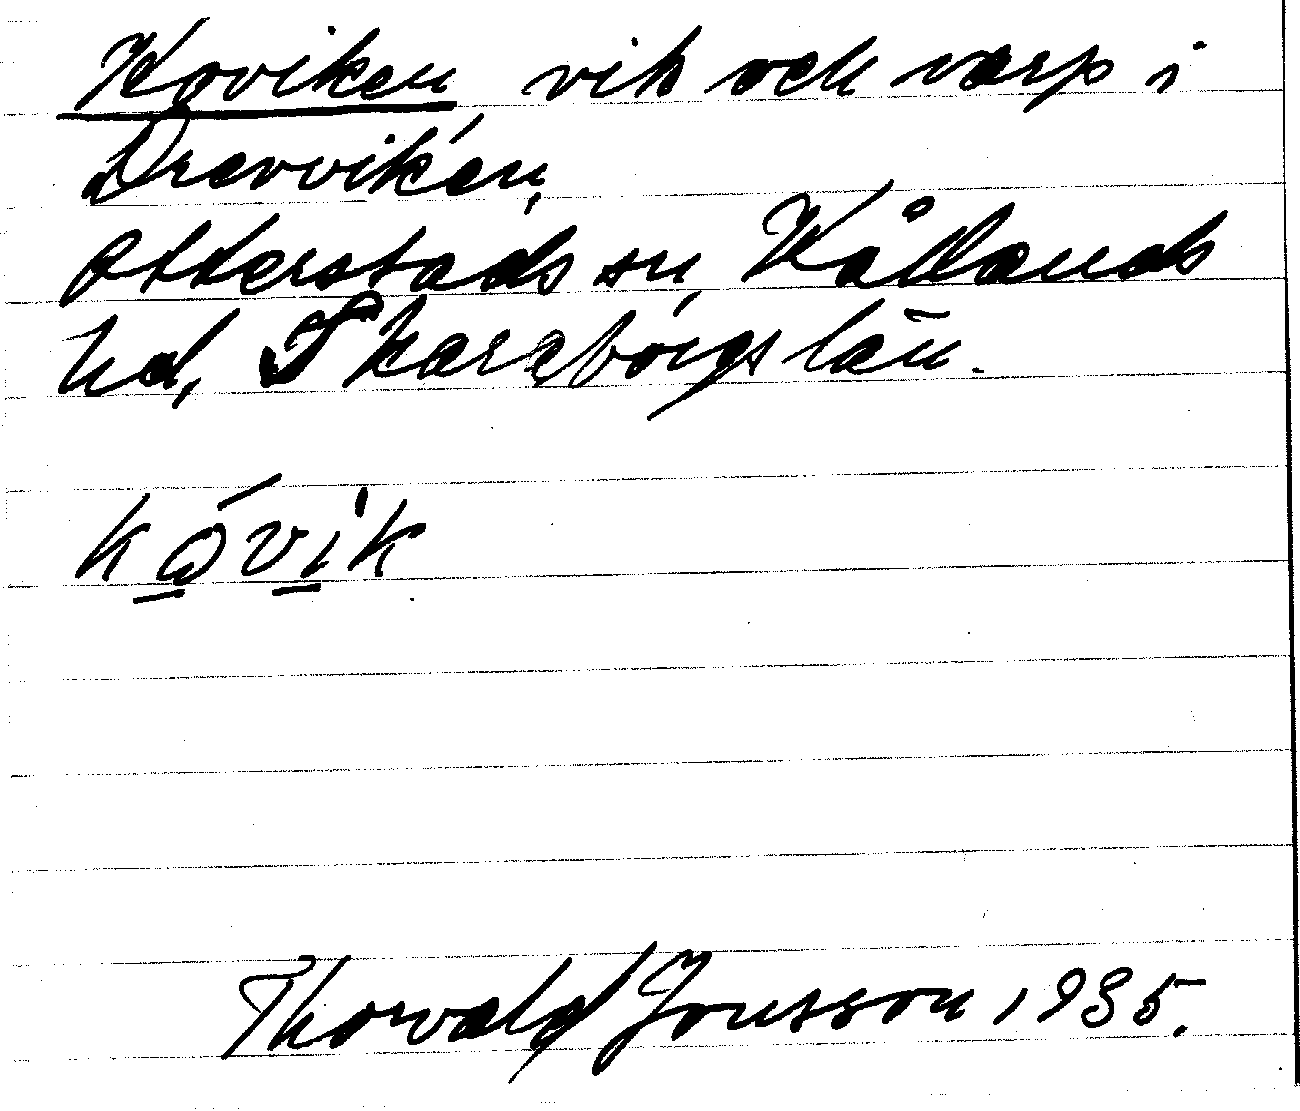 Koviken vik och varp i
Drevviken,
Otterstads sn, Kållands
hd, Skaraborgs län.
kóvik
Thorvald Jonsson 1935.